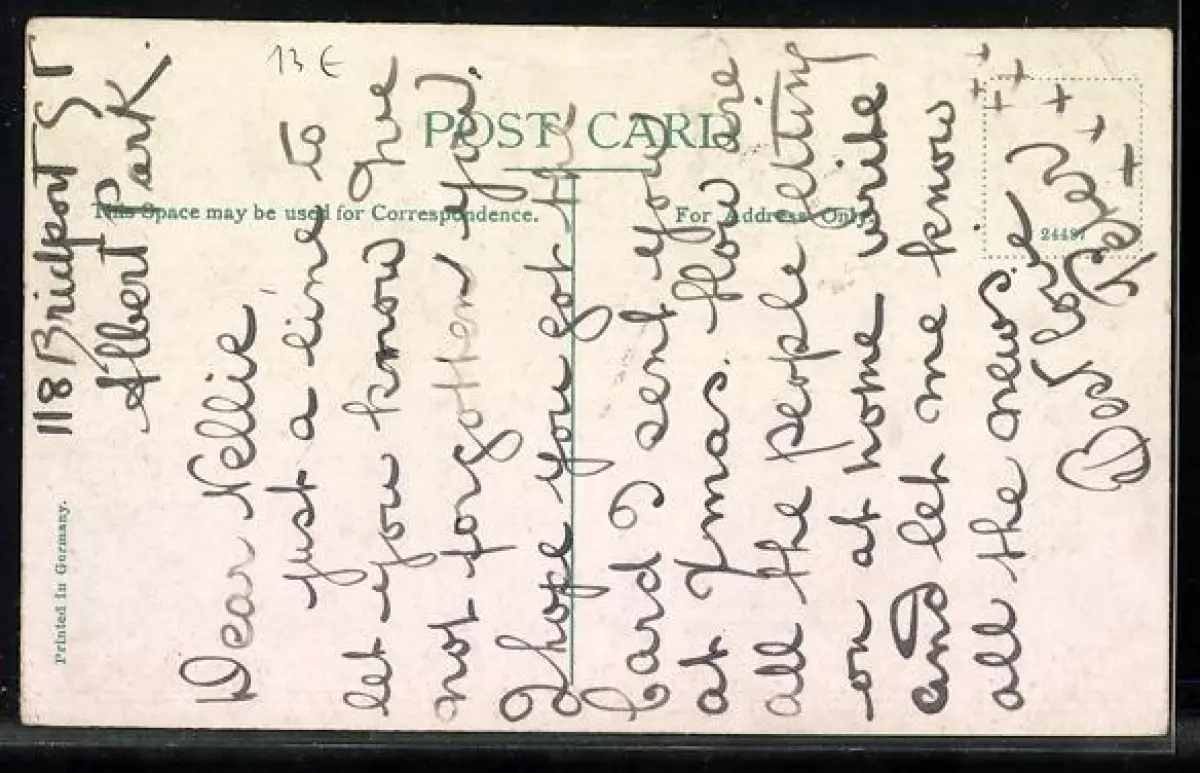 13 €
POST CARD
This Space may be used for Correspondence.
For Address Only.
24487
Printed in Germany.
118 Bridport ST
Albert Park.
Dear Nellie
just a line to
let you know I've
not forgotten you.
I hope you got the
card I sent you
at Xmas. How are
all the people getting
on at home write
and let me know
all the news.
Best love
+ + + + + + + +